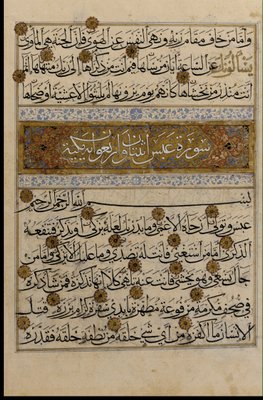 وأما من خاف مقام ربه ونهى النفس عن الهوى فإن الجنة هي المأوى
يسألونك عن الساعة أيان مرساها فيم أنت من ذكراها إلى ربك منتهاها إنما
أنت منذر من يخشاها كأنهم يوم يرونها لم يلبثوا إلا عشية أو ضحاها
سورة عبس اثنتان واربعون آية مكية
بسم الله الرحمن الرحيم
عبس وتولى أن جاءه الأعمى وما يدريك لعله يزكى أو يذكر فتنفعه
الذكرى أما من استغنى فأنت له تصدى وما عليك ألا يزكى وأما من
جاءك يسعى وهو يخشى فأنت عنه تلهى كلا إنها تذكرة فمن شاء ذكره
في صحف مكرمة مرفوعة مطهرة بأيدي سفرة كرام بررة قتل
الإنسان ما أكفره من أي شيء خلقه من نطفة خلقه فقدره